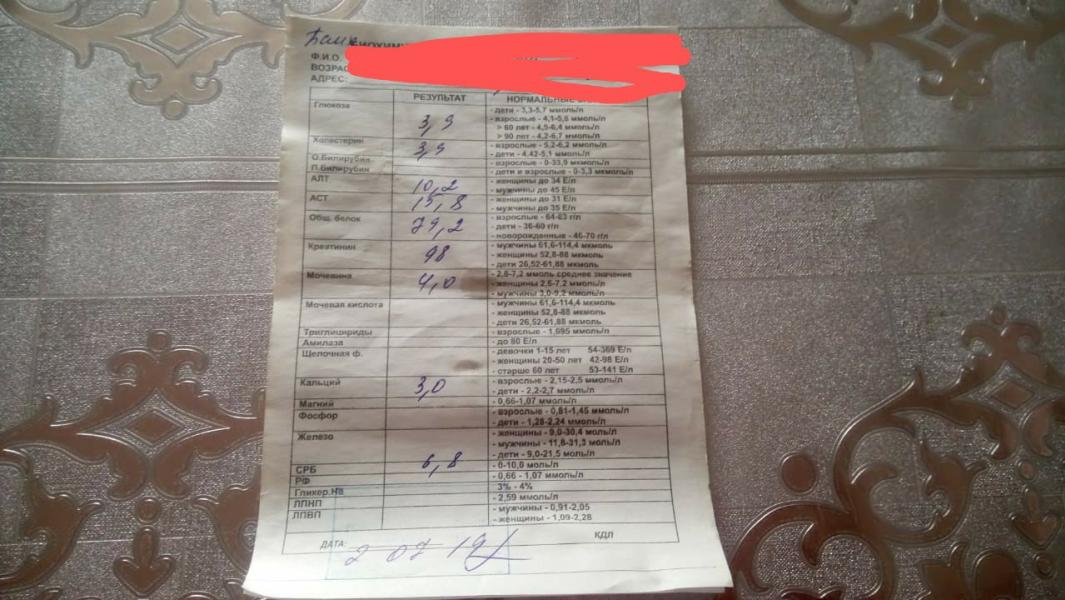 БИОХИМИ
Ф.И.О.
ВОЗРАС
АДРЕС:
РЕЗУЛЬТАТ НОРМАЛЬНЫЕ
Глюкоза 3,9 - дети - 3,3-5,7 ммоль/л
- взрослые - 4,1-5,8 ммоль/л
> 60 лет - 4,5-6,4 ммоль/л
> 90 лет - 4,2-6,7 ммоль/л
Холестерин 3,9 - взрослые - 5,2-6,2 ммоль/л
- дети - 4.42-5,1 ммоль/л
О.Билирубин - взрослые - 0-33,9 мкмоль/л
П.Билирубин - дети и взрослые - 0-3,3 мкмоль/л
АЛТ 10,2 - женщины до 34 Е/л
- мужчины до 45 Е/л
АСТ 15,8 - женщины до 31 Е/л
- мужчины до 35 Е/л
Общ. белок 79,2 - взрослые - 64-83 г/л
- дети - 36-60 г/л
- новорожденные - 46-70 г/л
Креатинин 98 - мужчины 61,6-114,4 мкмоль
- женщины 52,8-88 мкмоль
- дети 26,52-61,88 мкмоль
Мочевина 4,0 - 2,8-7,2 ммоль среднее значение
- женщины 2,6-7,2 ммоль/л
- мужчины 3,0-9,2 ммоль/л
Мочевая кислота - мужчины 61,6-114,4 мкмоль
- женщины 52,8-88 мкмоль
- дети 26,52-61,88 мкмоль
Триглицириды - взрослые - 1,695 ммоль/л
Амилаза - до 80 Е/л
Щелочная ф. - девочки 1-15 лет 54-369 Е/л
- женщины 20-50 лет 42-98 Е/л
- старше 60 лет 53-141 Е/л
Кальций 3,0 - взрослые - 2,15-2,5 ммоль/л
- дети - 2,2-2,7 ммоль/л
Магний - 0,66-1,07 ммоль/л
Фосфор - взрослые - 0,81-1,45 ммоль/л
- дети - 1,28-2,24 ммоль/л
Железо 6,8 - женщины - 9,0-30,4 моль/л
- мужчины - 11,6-31,3 моль/л
- дети - 9,0-21,5 моль/л
СРБ - 0-10,0 моль/л
РФ - 0,66 - 1,07 ммоль/л
Гликер.Нв 3% - 4%
ЛПНП - 2,59 ммоль/л
ЛПВП - мужчины - 0,91-2,05
- женщины - 1,09-2,28
КДЛ
ДАТА: 2 07 19